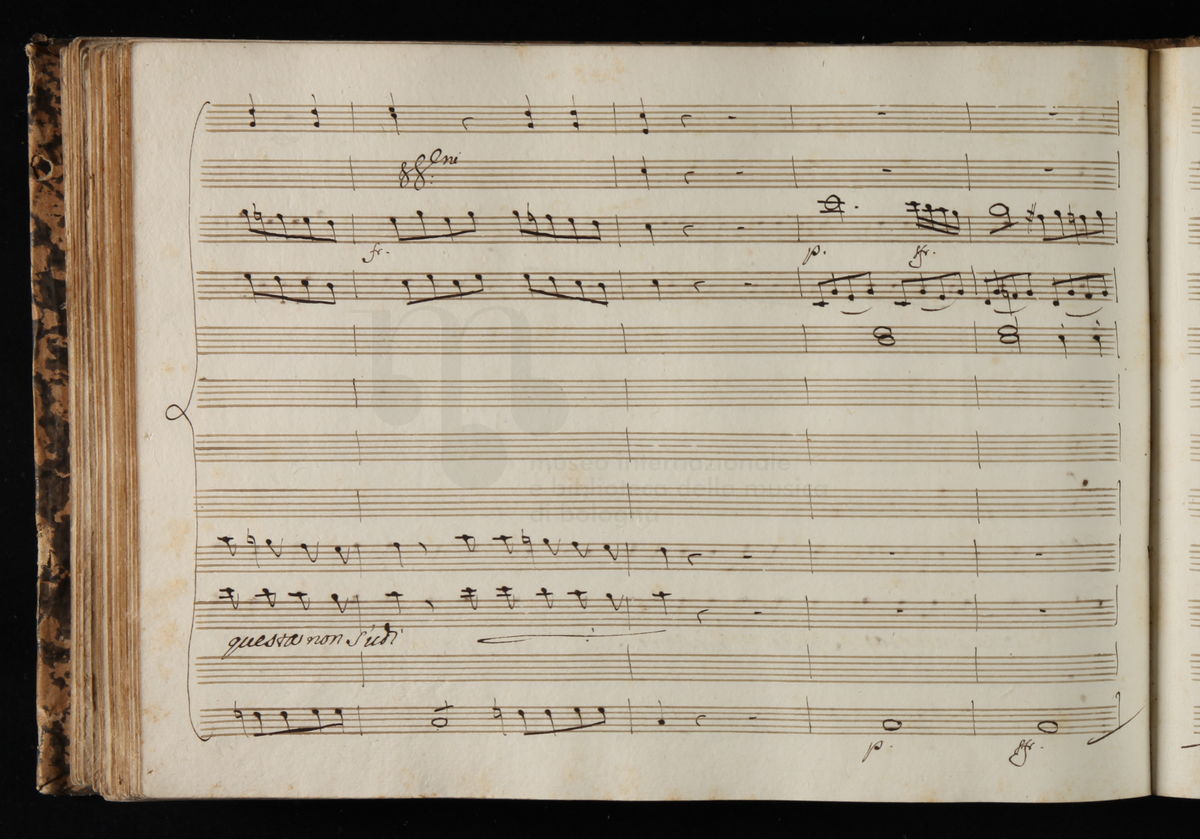 fr.
p.
sfr.
museo internazionale
e biblioteca della musica
di bologna
questa non s'udì
p.
sfr.